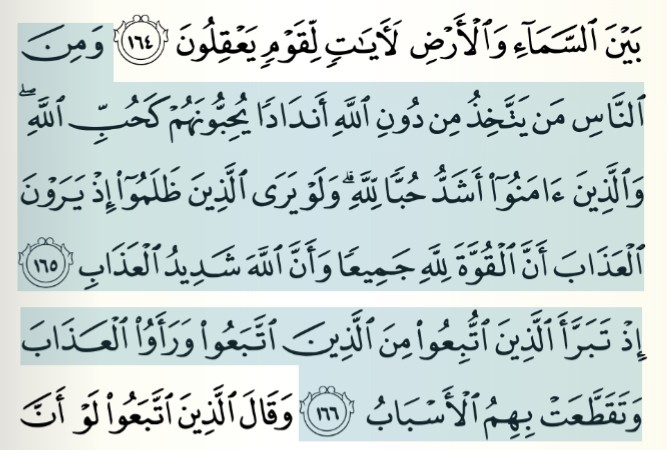 بَيْنَ ٱلسَّمَآءِ وَٱلْأَرْضِ لَأٓيَـٰتٍ لِّقَوْمٍ يَعْقِلُونَ ١٦٤ وَمِنَ
ٱلنَّاسِ مَن يَتَّخِذُ مِن دُونِ ٱللَّهِ أَندَادًا يُحِبُّونَهُمْ كَحُبِّ ٱللَّهِ ۖ
وَٱلَّذِينَ ءَامَنُوٓا۟ أَشَدُّ حُبًّا لِّلَّهِ ۗ وَلَوْ يَرَى ٱلَّذِينَ ظَلَمُوٓا۟ إِذْ يَرَوْنَ
ٱلْعَذَابَ أَنَّ ٱلْقُوَّةَ لِلَّهِ جَمِيعًا وَأَنَّ ٱللَّهَ شَدِيدُ ٱلْعَذَابِ ١٦٥
إِذْ تَبَرَّأَ ٱلَّذِينَ ٱتُّبِعُوا۟ مِنَ ٱلَّذِينَ ٱتَّبَعُوا۟ وَرَأَوُا۟ ٱلْعَذَابَ
وَتَقَطَّعَتْ بِهِمُ ٱلْأَسْبَابُ ١٦٦ وَقَالَ ٱلَّذِينَ ٱتَّبَعُوا۟ لَوْ أَنَّ